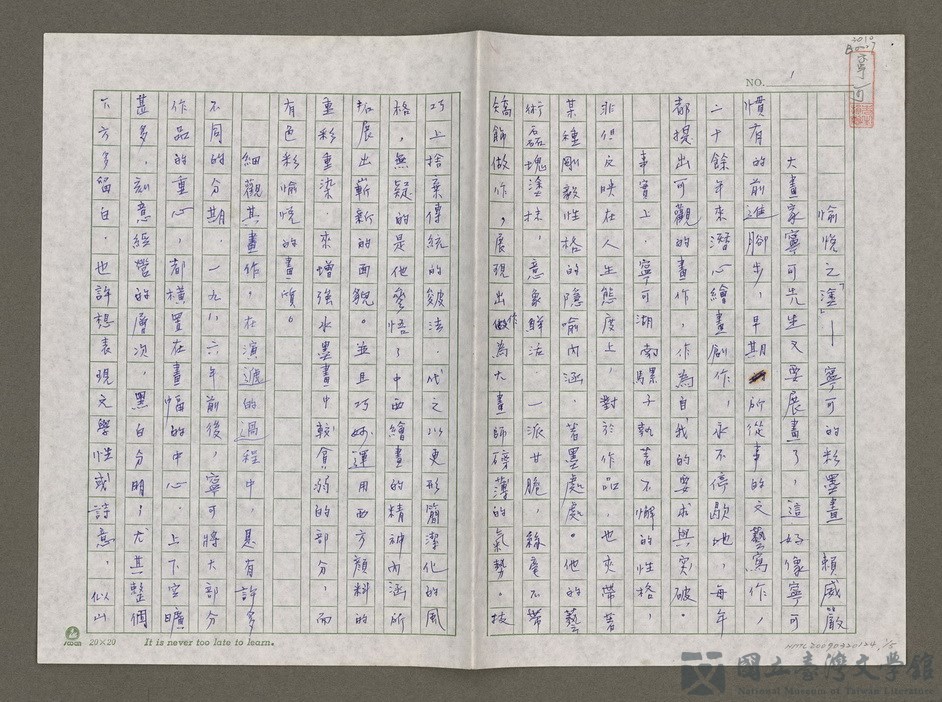 2010
NO. 1
愉悅之「塗」——寧可的彩墨畫 賴威嚴
大畫家寧可先生又要展畫了,這好像寧可
慣有的前進腳步,早期所從事的文藝寫作,
二十餘年來潛心繪畫創作,永不停歇地,每年
都提出可觀的畫作,作為自我的要求與突破。
事實上,寧可湖南騾子執著不懈的性格,
非但反映在人生態度上,對於作品,也夾帶著
某種剛毅性格的隱喻內涵。著墨處處。他的藝
術磊塊塗抹,意象鮮活。一派甘脆,絲毫不帶
矯飾做作,展現出作為大畫師磅薄的氣勢。技
巧上捨棄傳統的皴法,代之以更形簡潔化的風
格,無疑的是他參悟了中西繪畫的精神內涵所
拓展出嶄新的面貌。並且巧妙運用西方顏料的
重彩重染,來增強水墨畫中較貧弱的部分,而
有色彩愉悅的畫質。
細觀其畫作,在演遞的過程中,是有許多
不同的分期。一九八六年前後,寧可將大部分
作品的重心,都橫置在畫幅的中心。上下空曠
甚多,刻意經營的層次,黑白分明,尤其整個
下方多留白。也許想表現文學性或詩意,似山
20×20 It is never too late to learn.
NMTL20090320124, 1/5
國立臺灣文學館
National Museum of Taiwan Literature